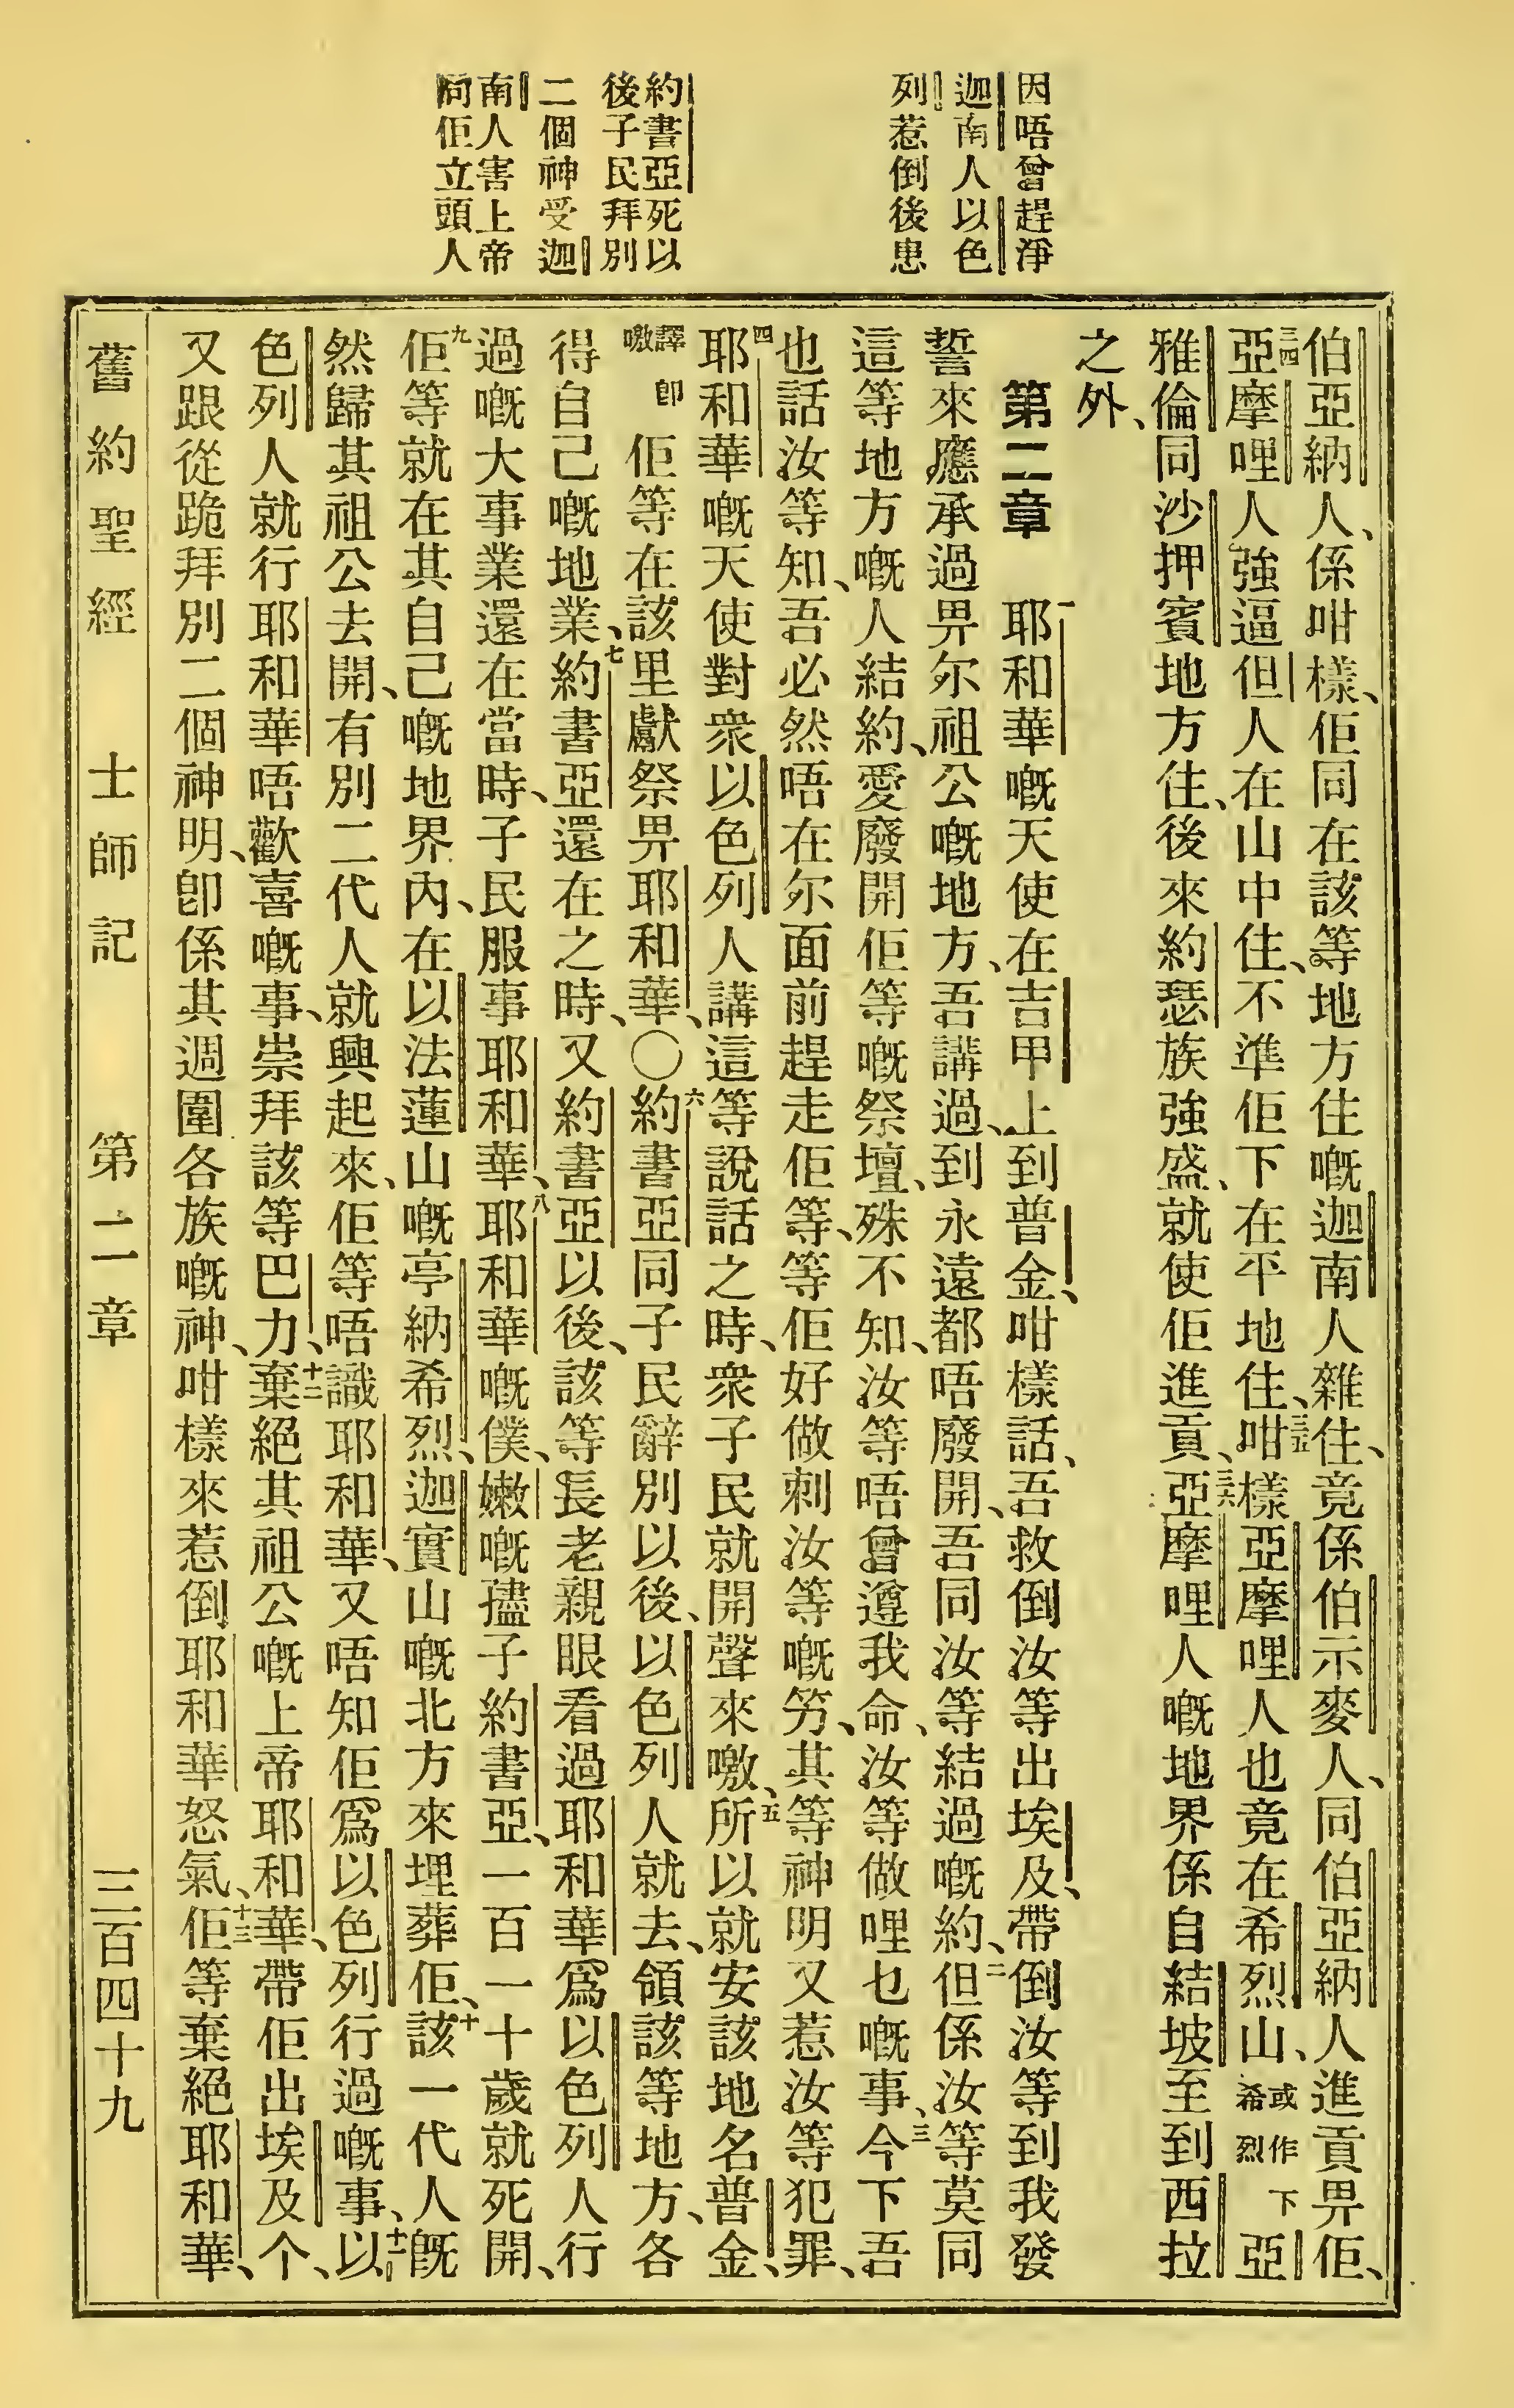 因唔曾趕淨
迦南人以色
列惹倒後患
約書亞死以
後子民拜別
二個神受迦
南人害上帝
同佢立頭人
伯亞納人、係咁樣、佢同在該等地方住嘅迦南人雜住、竟係伯示麥人、同伯亞納人進貢畀佢、
三四亞摩哩人強逼但人在山中住、不準佢下在平地住、三五咁樣亞摩哩人也竟在希烈山、或作下希烈亞
雅倫同沙押賓地方住、後來約瑟族強盛、就使佢進貢、三六亞摩哩人嘅地界係自結坡至到西拉
之外、
第二章　一耶和華嘅天使在吉甲上到普金、咁樣話、吾救倒汝等出埃及、帶倒汝等到我發
誓來應承過畀尔祖公嘅地方、吾講過、到永遠都唔廢開、吾同汝等結過嘅約、二但係汝等莫同
這等地方嘅人結約、愛廢開佢等嘅祭壇、殊不知、汝等唔曾遵我命、汝等做哩乜嘅事、三今下吾
也話汝等知、吾必然唔在尔面前趕走佢等、等佢好做刺汝等嘅竻、其等神明又惹汝等犯罪、
四耶和華嘅天使對衆以色列人講這等說話之時、衆子民就開聲來噭、五所以就安該地名普金、
譯即噭佢等在該里獻祭畀耶和華、〇六約書亞同子民辭別以後、以色列人就去、領該等地方、各
得自己嘅地業、七約書亞還在之時、又約書亞以後、該等長老親眼看過耶和華爲以色列人行
過嘅大事業還在當時、子民服事耶和華、八耶和華嘅僕、嫩嘅孻子約書亞、一百一十歲就死開、
九佢等就在其自己嘅地界內、在以法蓮山嘅亭納希烈、迦實山嘅北方來埋葬佢、十該一代人旣
然歸其祖公去開、有別二代人就興起來、佢等唔識耶和華、又唔知佢爲以色列行過嘅事、十一以
色列人就行耶和華唔歡喜嘅事、崇拜該等巴力、十二棄絕其祖公嘅上帝耶和華、帶佢出埃及个、
又跟從跪拜別二個神明、卽係其週圍各族嘅神、咁樣來惹倒耶和華怒氣、十三佢等棄絕耶和華、
舊約聖經　士師記　第二章　三百四十九